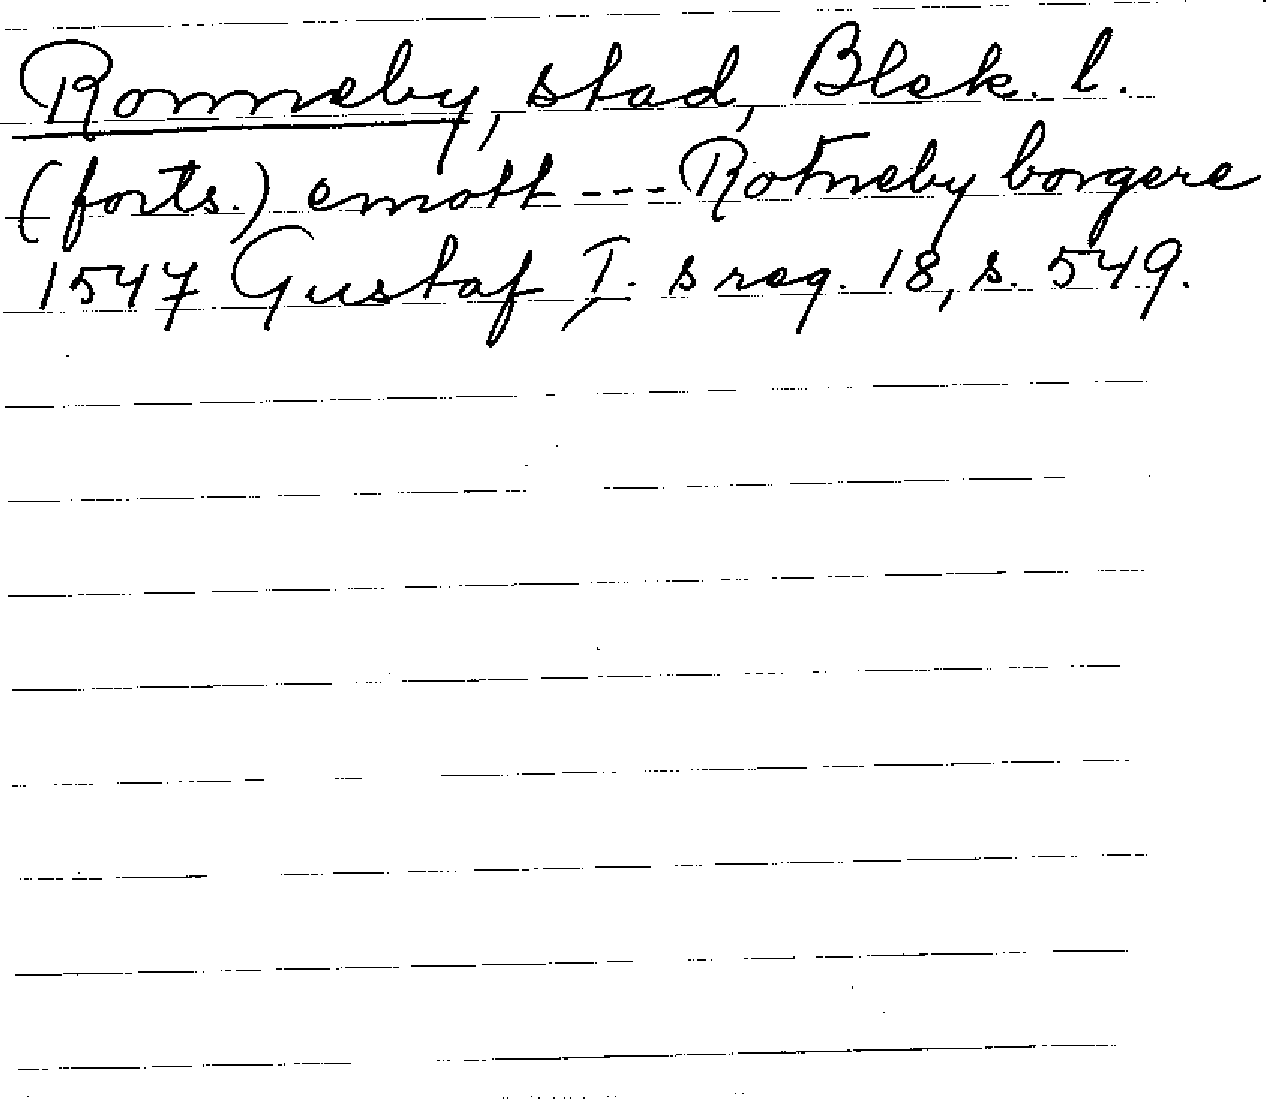 Ronneby, stad, Blek. l.
(forts.) emott --- Rotneby borgere
1547 Gustaf I. s reg. 18, s. 549.